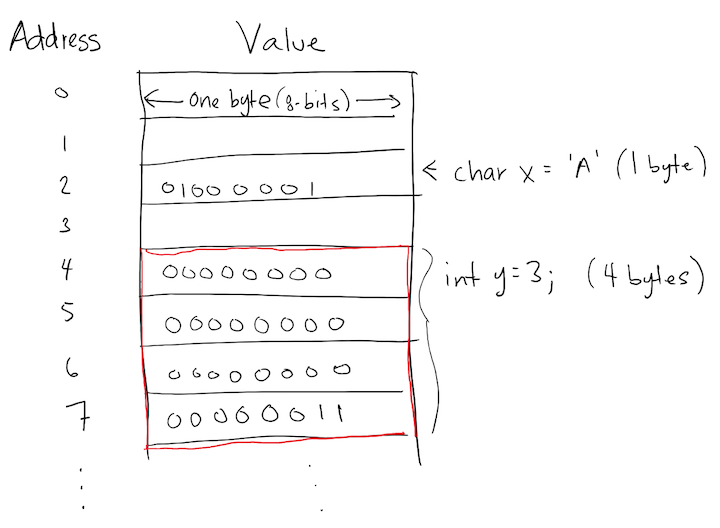 Address Value
0 ← one byte (8-bits) →
1
← char x = 'A' (1 byte)
2 01000001
3
4 00000000 int y=3; (4 bytes)
5 00000000
6 00000000
7 00000011